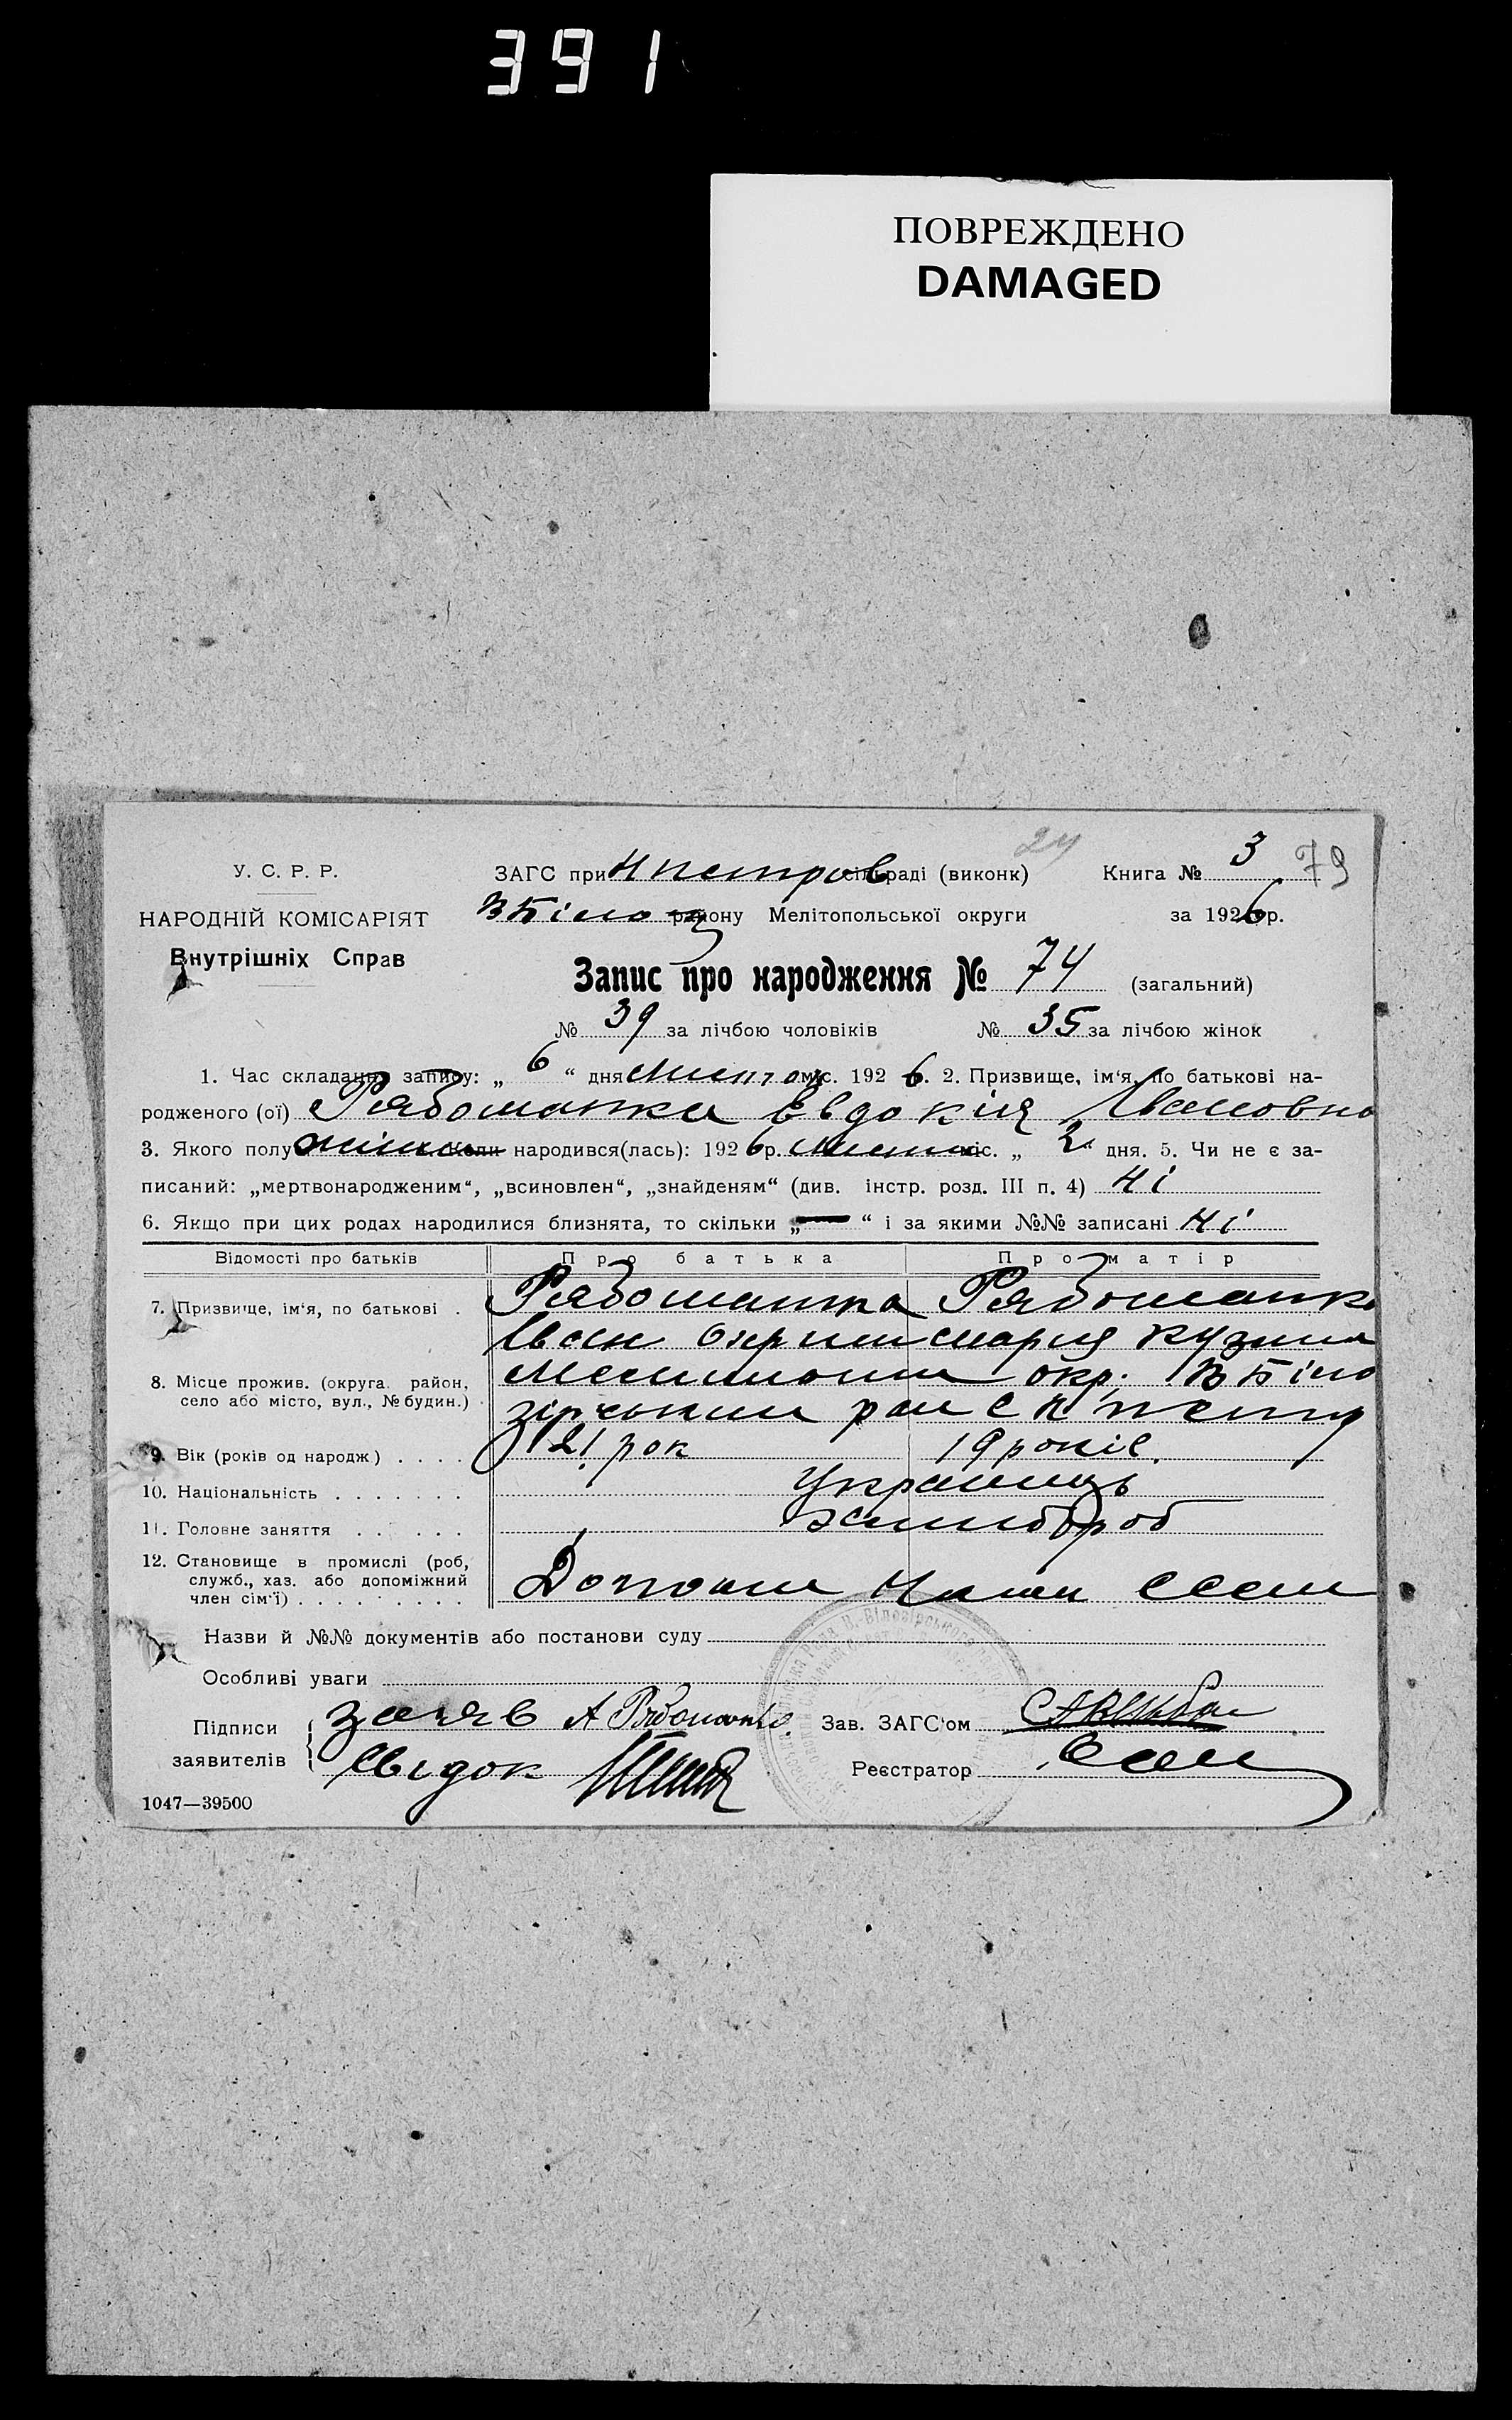 391
ПОВРЕЖДЕНО
DAMAGED
24
У. С. Р. Р.
ЗАГС при Н петров сільраді (виконк)
Книга № 3
79
НАРОДНІЙ КОМІСАРІЯТ
Внутрішніх Справ
ВБілоз району Мелітопольської округи
за 1926 р.
Запис про народження № 74 (загальний)
№ 39 за лічбою чоловіків № 35 за лічбою жінок
1. Час складання запису: „ 6 “ дня міс. 192 6. 2. Призвище, ім‘я, по батькові на-
родженого (ої) Рябошапка Евдокія Івановно
3. Якого полу коли народився(лась): 192 6 р. міс. „ 2 “ дня. 5. Чи не є за-
писаний: „мертвонародженим“, „всиновлен“, „знайденям“ (див. інстр. розд. III п. 4) Ні
6. Якщо при цих родах народилися близнята, то скільки „— “ і за якими №№ записані Ні
Відомості про батьків
Про батька
Про матір
7. Призвище, ім‘я, по батькові .
Рябошапка
Рябошапк
Іван
мария кузми
8. Місце прожив. (округа, район,
село або місто, вул., № будин.)
окр. ВБіло
зірський рай с Н петр
9. Вік (років од народж) . . . .
21 рок
19 років
10. Національність . . . . . . .
Українць
11. Головне заняття . . . . . .
хлибороб
12. Становище в промислі (роб,
служб., хаз. або допоміжний
член сім‘ї) . . . . . . . . .
Назви й №№ документів або постанови суду
Особливі уваги
Підписи
заявителів
заяв А Рябошапко
Свідок
Зав. ЗАГС‘ом
Реєстратор
1047—39500